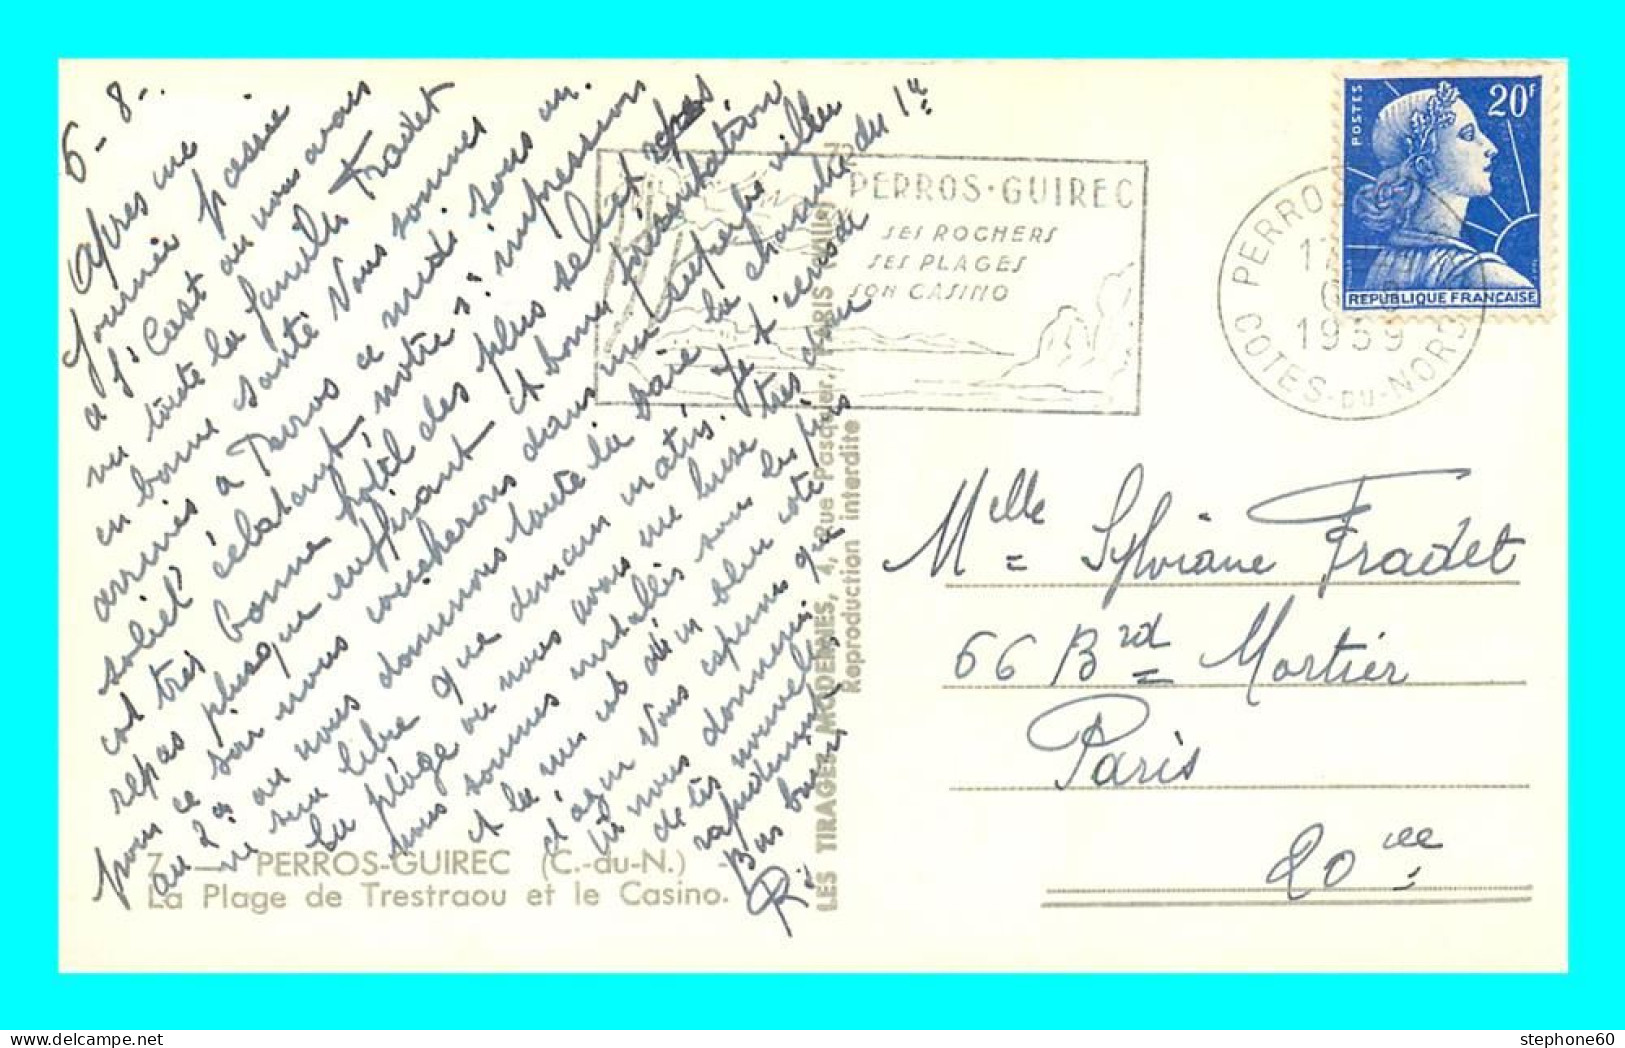 6-8-
Après une
journée passée
à St Cast où nous avons
vu toute la famille Fradet
en bonne santé nous sommes
arrivés à Perros ce midi sous un
soleil éclatant, notre 1ère impression
est très bonne hôtel des plus select repas
repas plus que suffisant et bonne présentation
pour ce soir nous coucherons dans une superbe villa
au 2è où nous donnerons toute la
ne sera libre que demain matin. Je t'écris de
la plage où nous avons une
nous sommes installés sous les pins
et la vue est d'un bleu
d'azur Vous espérons que
tu nous donneras
de tes nouvelles
rapidement
Bons baisers
PERROS-GUIREC
SES ROCHERS
SES PLAGES
SON CASINO
PERROS
17
1959
COTES-DU-NORD
POSTES
20F
REPUBLIQUE FRANÇAISE
LES TIRAGES MODERNES, 4, Rue Pasquier, PARIS (VIIIe)
Reproduction interdite
Melle Sylviane Fradet
66 Brd Mortier
Paris
20ème
7. — PERROS-GUIREC (C.-du-N.)
La Plage de Trestraou et le Casino.
stephone60